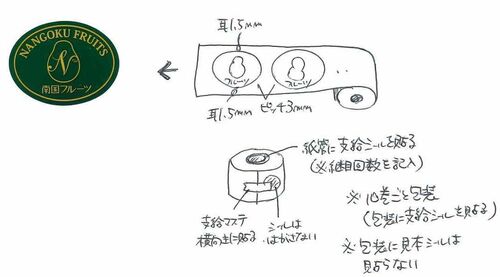 NANGOKU FRUITS
N
南国フルーツ
耳1.5mm
フルーツ
フルーツ
耳1.5mm
ピッチ3mm
紙管に支給シールを貼る
(※継相回数を記入)
支給マステ
横向きに貼る
シールは
はがさない
※10巻ごと包装
(包装に支給シールを貼る)
※包装に見本シールは
貼らない